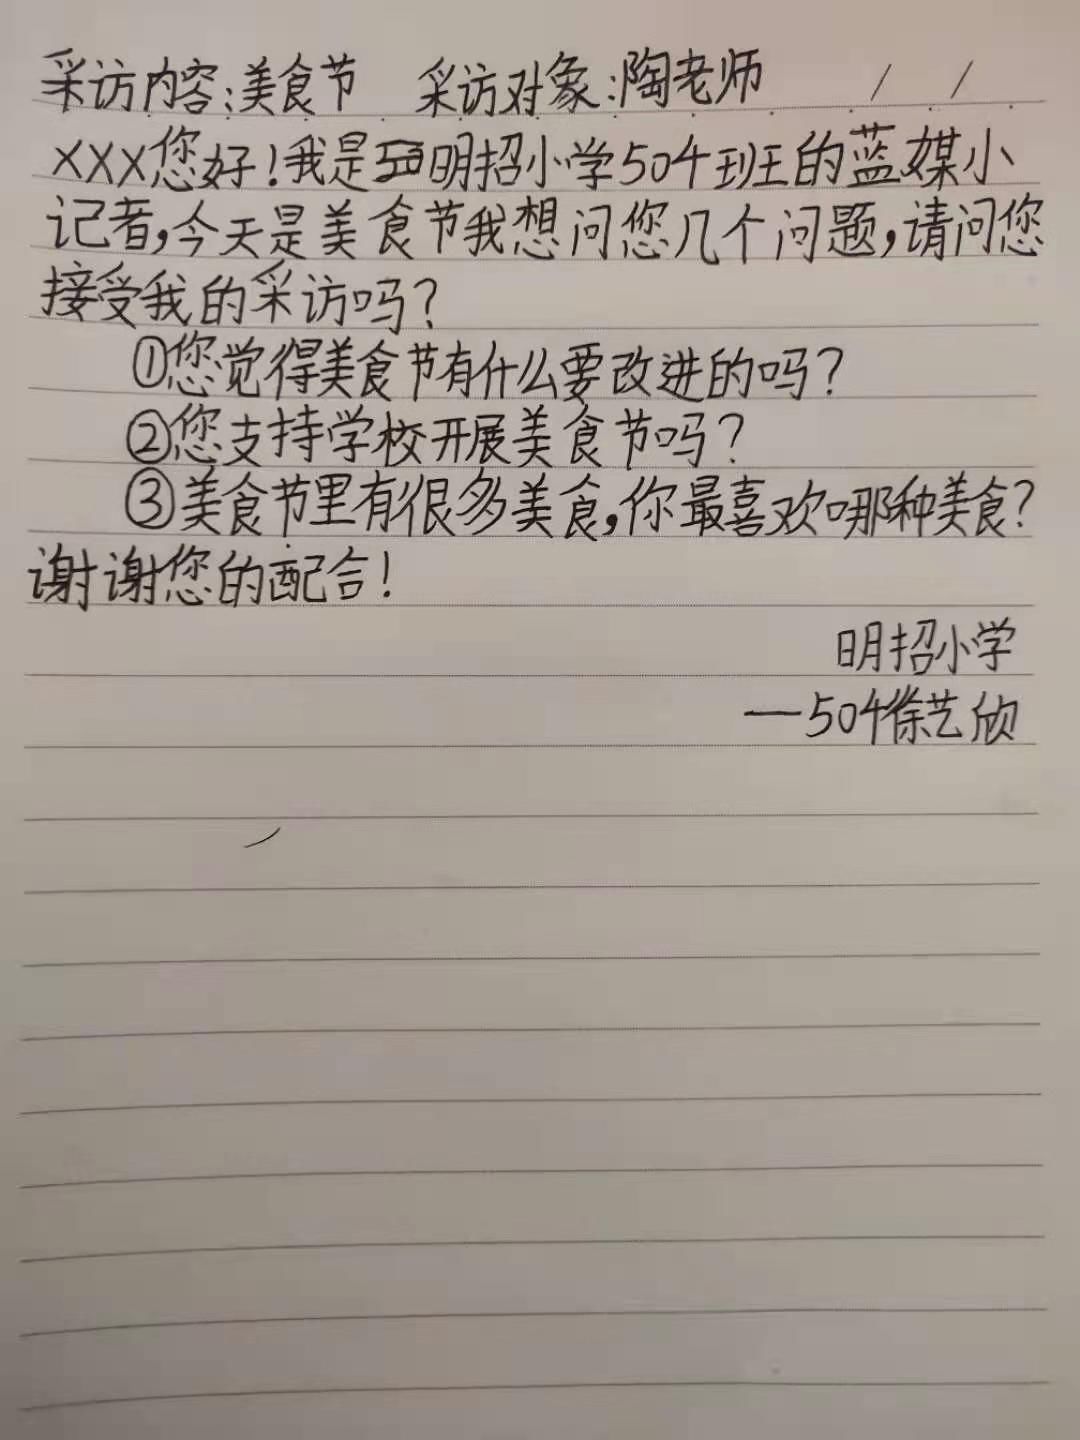 采访内容:美食节 采访对象:陶老师
XXX您好!我是明招小学504班的蓝媒小
记者,今天是美食节我想问您几个问题,请问您
接受我的采访吗?
①您觉得美食节有什么要改进的吗?
②您支持学校开展美食节吗?
③美食节里有很多美食,你最喜欢哪种美食?
谢谢您的配合!
明招小学
——504徐艺欣